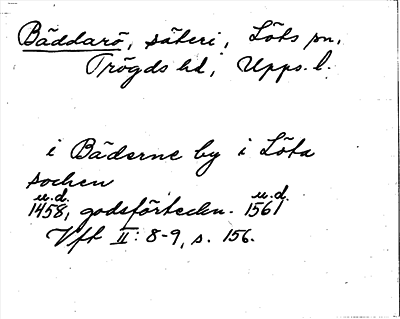 Bäddarö, säteri, Löts sn,
Trögds hd, Upps. l.
i Bäderne by i Löta
socken
u.d. u.d.
1458, godsförteckn. 1561
Vft II: 8-9, s. 156.